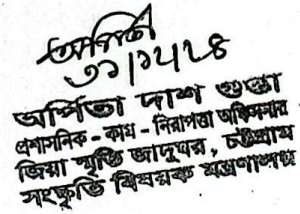 অর্পিতা
৩১/১২/২৪
অর্পিতা দাশ গুপ্তা
প্রশাসনিক - কাম - নিরাপত্তা অফিসার
জিয়া স্মৃতি জাদুঘর, চট্টগ্রাম
সংস্কৃতি বিষয়ক মন্ত্রণালয়